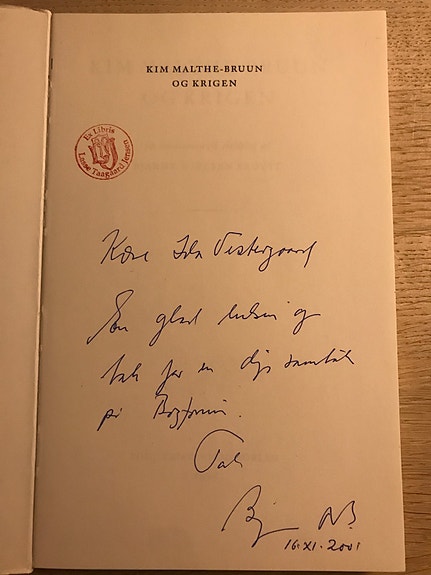 KIM MALTHE-BRUUN
OG KRIGEN
Ex Libris
Lasse Taagaard Jensen
Kære Ida Vestergaard
En glad hilsen og
tak for en dyb samtale
på Bogforum.
Tak
16·XI·2001